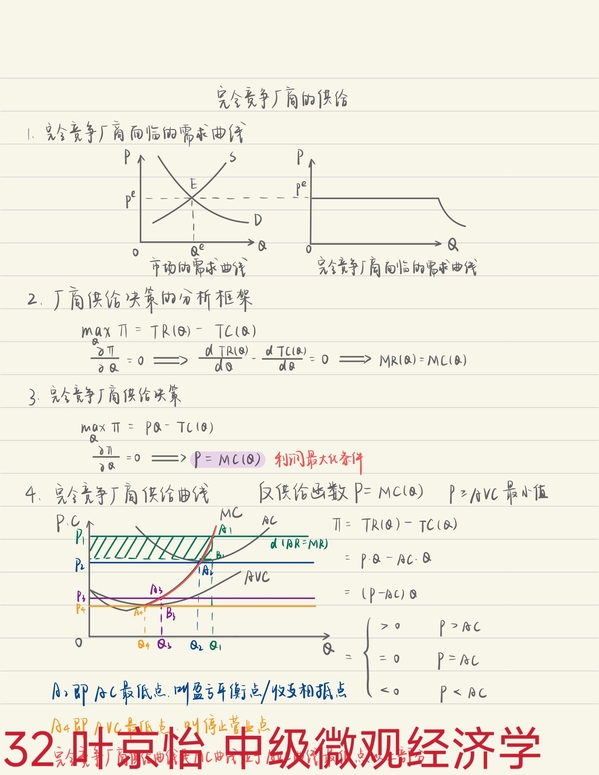 完全竞争厂商的供给
1. 完全竞争厂商面临的需求曲线
P S P
E
Pe Pe
D
0 Qe Q 0 Q
市场的需求曲线 完全竞争厂商面临的需求曲线
2. 厂商供给决策的分析框架
max π = TR(Q) - TC(Q)
Q
∂π/∂Q = 0 ⟹ d TR(Q)/dQ - d TC(Q)/dQ = 0 ⟹ MR(Q) = MC(Q)
3. 完全竞争厂商供给决策
max π = PQ - TC(Q)
Q
∂π/∂Q = 0 ⟹ P = MC(Q) 利润最大化条件
4. 完全竞争厂商供给曲线 反供给函数 P = MC(Q) P ≥ AVC最小值
P.C MC AC
P1 A1 d(AR=MR)
B1
P2 A2
AVC
P3 A3
P4 A4 B3
0 Q4 Q3 Q2 Q1 Q
π = TR(Q) - TC(Q)
= P·Q - AC·Q
= (P-AC)Q
= { > 0 P > AC
= 0 P = AC
< 0 P < AC
A2即AC最低点,叫盈亏平衡点/收支相抵点
A4即AVC最低点,叫停止营业点
32 叶京怡 中级微观经济学